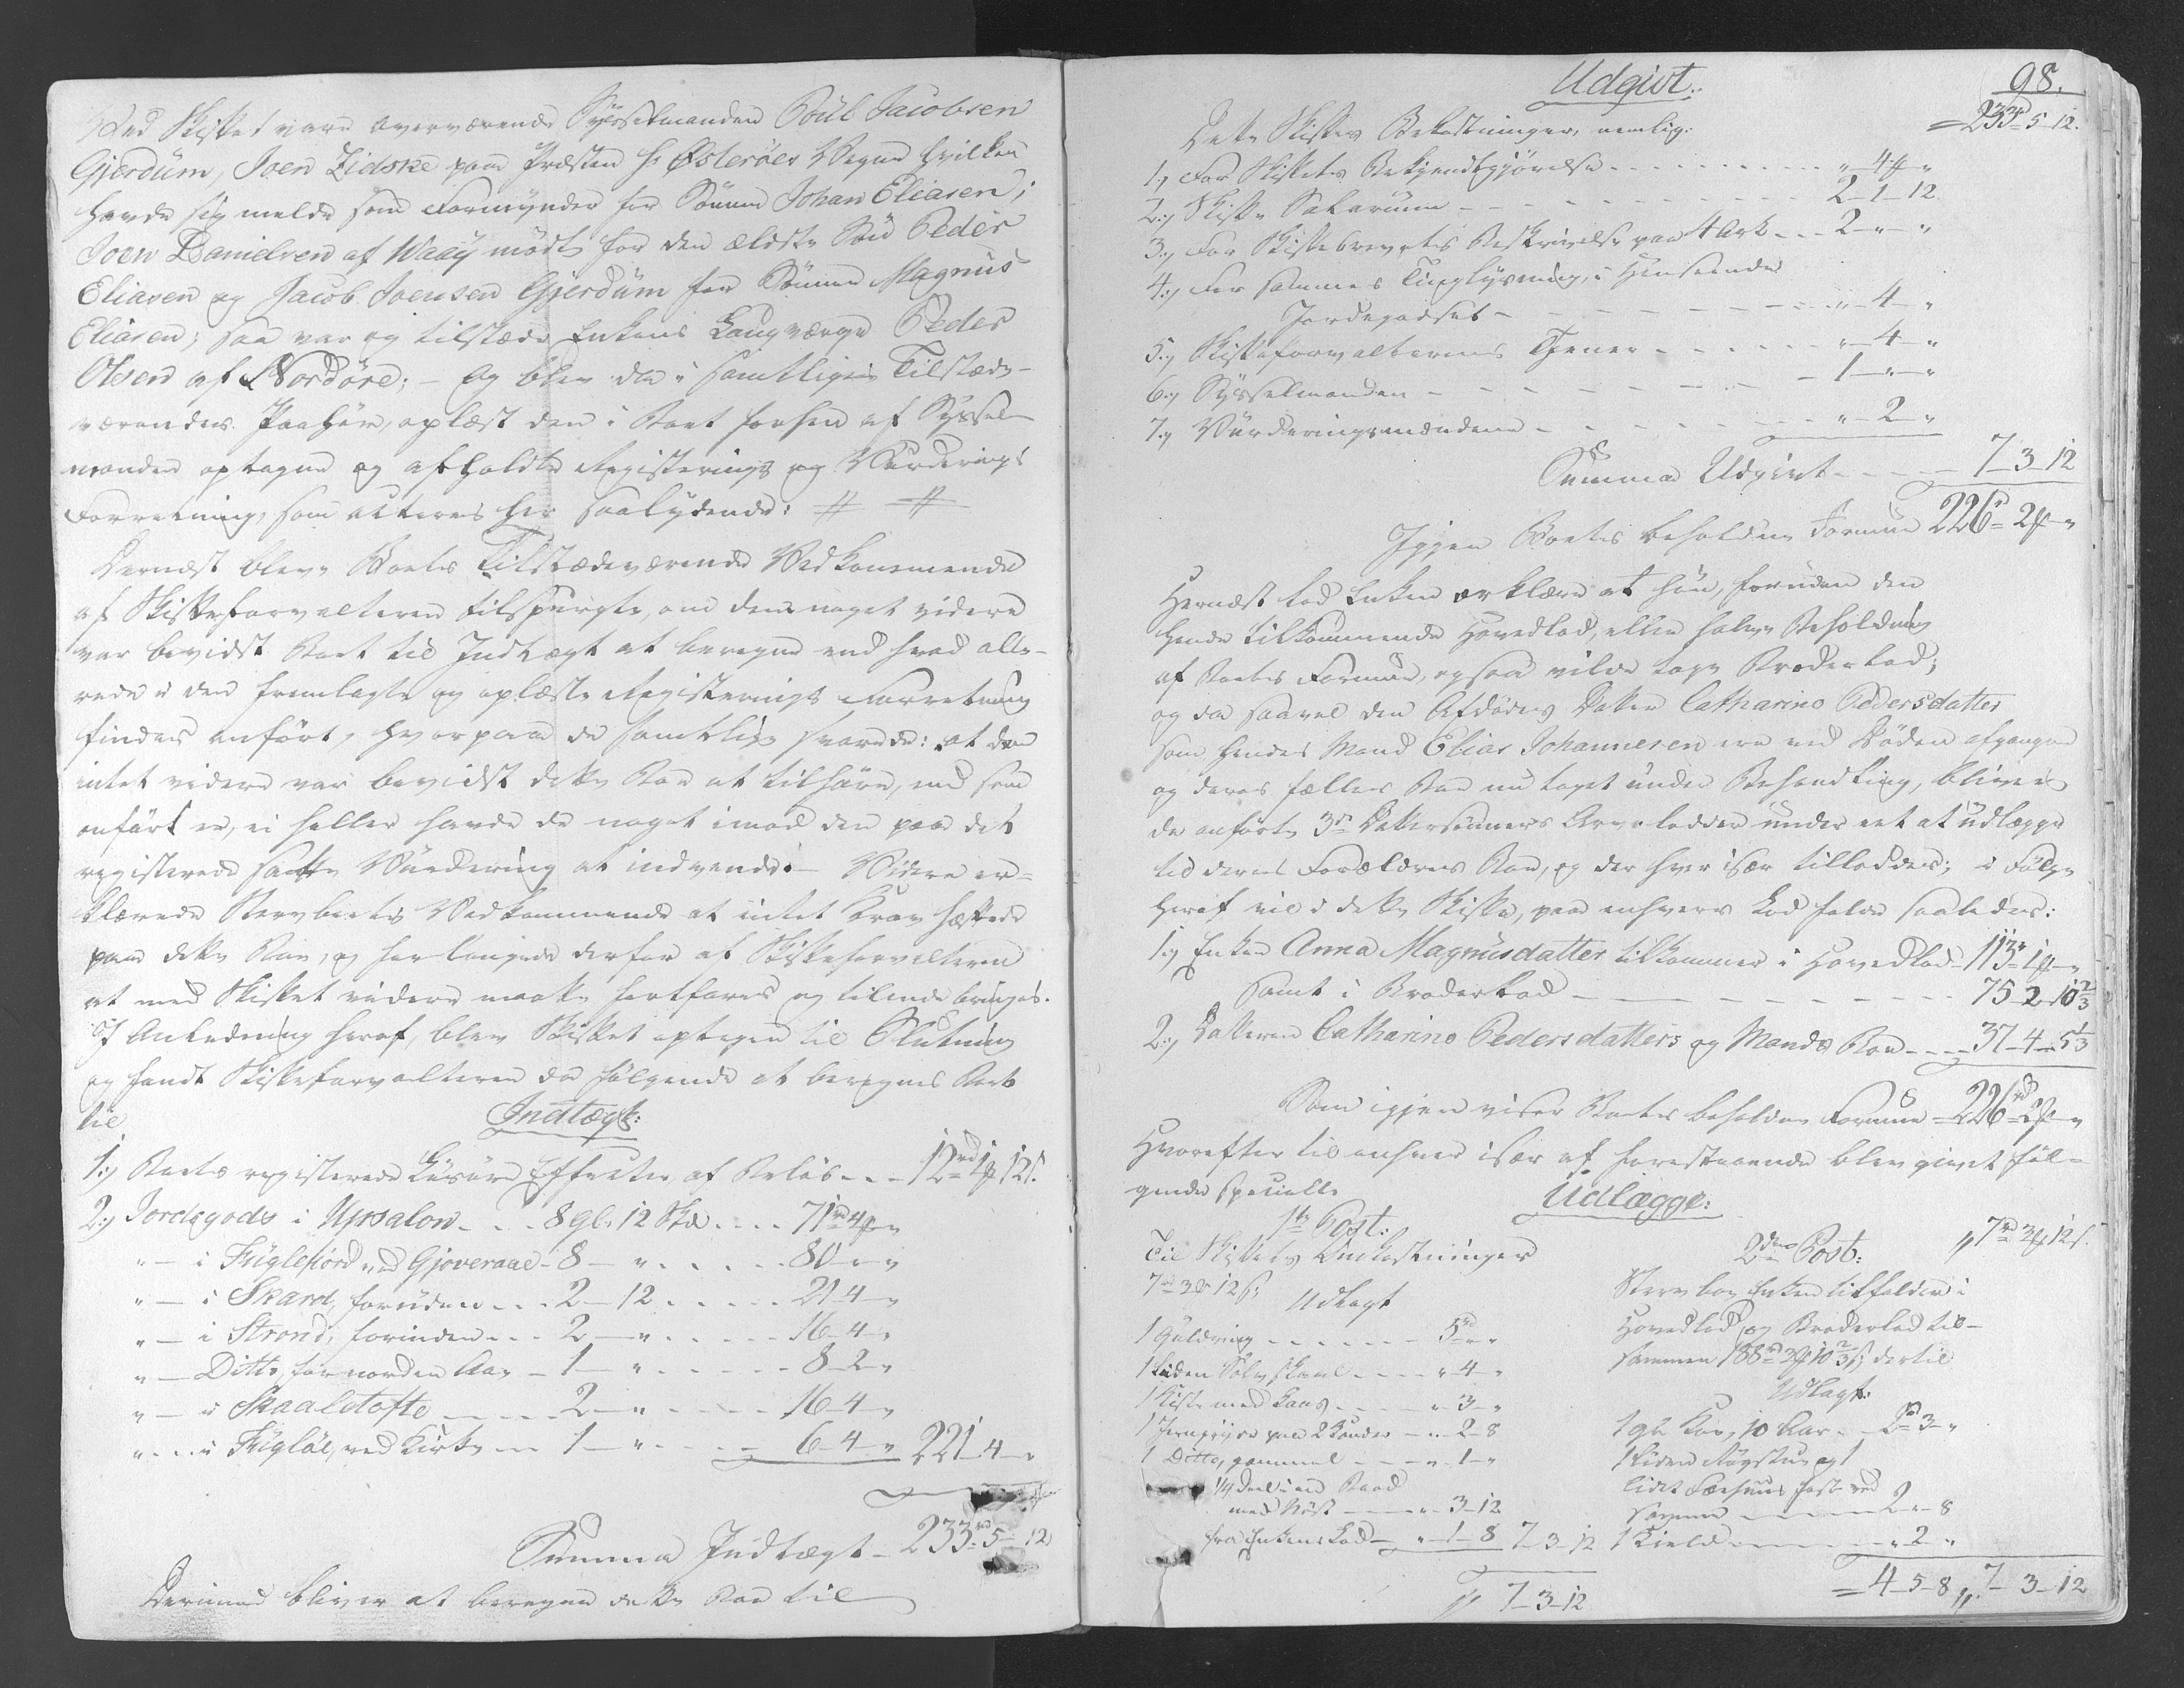 Ved Skiftet vare overværende Sysselmanden Poul Jacobsen
Gjerdum, Joen Lidske paa Præsten Hr Østerøes Vegne hvilken
havde sig meldt som Formynder for Sönnen Johan Eliasen;
Joen Danielsen af Waaÿ mödte for den ældste Sön Peder
Eliasen og Jacob Joensen Gjerdum for Sönnen Magnus
Eliasen; saa var og tilstæde Enkens Laugværge Peder
Olsen af Nordöre; - Og blev da i samtliges Tilstæde-
værendes Paahör, oplæst den i Boet forhen af Syssel-
manden optagne og afholdte Registerings og Vurderings
Forretning, som acteres her saalydende: # #
Dernæst bleve Boets Tilstædeværende Vedkommende
af Skifteforvalteren tilspurgte, om dem noget videre
var bevidst Boet til Indtægt at beregne end hvad alle-
rede i den fremlagte og oplæste Registerings Forretning
findes anfört, hvorpaa de samtlige svarede: at dem
intet videre var bevidst dette Boe at tilhöre, end som
anfört er, ei heller havde de noget imod den paa det
registerede satte Vurdering at indvende. - Videre er-
klærede Stervboets Vedkommende at intet Krav hæftede
paa dette Boe, og forlangede derfor af Skifteforvalteren
at med Skiftet videre maatte fortfares og tilende bringes.
I Anledning heraf, blev Skiftet optagen til Slutning
og fandt Skifteforvalteren da fölgende at beregnes Boet
til
Indtægt:
1:) Boets registerede Lösöre Effecter, af Belöb - - - 12rd 1ꝟ 12ß.
2:) Jordegods i Upsalon - - - 8 gl. 12 Skd - - - - 71rd 4ꝟ "
" — i Fuglefiord ved Gjoveraae - 8 — " - - - - - 80 " "
" — i Skard, foruden - - - 2 - 12 - - - - - 21 4 - "
" — i Strond, forinden - - - 2 — " - - - - - 16 - 4 - "
" — Ditto, for norden Aae - 1 — " - - - - - 8 - 2 - "
" — i Skaaletofte - - - - 2 — " - - - - 16 - 4 - "
" - - - i Fuglöe, ved Kirke - - 1 — " - - - - - 6 - 4 - " 221 - 4 - "
Summa Indtægt - 233rd 5 - 12
Derimod bliver at beregne dette Boe til
98.
Udgivt:
= 233rd 5 - 12.
Dette Skiftes Bekostninger, nemlig:
1:) For Skiftets Bekjendtgjörelse - - - - - - - - " 4ꝟ "
2:) Skifte Salarium - - - - - - - - - - 2 - 1 - 12
3:) For Skiftebrevets Beskrivelse paa 4 Ark - - - 2 - " - "
4:) For sammes Tinglysning, i Henseende
Jordegodset - - - - - - - - - - " - 4 - "
5:) Skifteforvalterens Tjener - - - - - - - " - 4 - "
6:) Sysselmanden - - - - - - - - - - 1 - " - "
7:) Vurderingsmændene - - - - - - - - " - 2 - "
Summa Udgivt - - - - 7 - 3 - 12
Igjen Boets beholdne Formue 226rd 2ꝟ "
Hernæst lod Enken erklære at hun, foruden den
hende tilkommende Hovedlod, eller halve Beholdning
af Boets Formue, ogsaa vilde tage Broderlod;
og da saavel den Afdödes Datter Catharine Pedersdatter
som hendes Mand Elias Johannesen ere ved Döden afgangne
og deres fælles Boe nu taget under Behandling, bliver
de anförte 3de Dattersönners Arvelodder under eet at udlægge
til deres Forældres Boe, og der hver især tillodder; i Fölge
heraf vil i dette Skifte, paa enhvers Lod falde saaledes:
1:) Enken Anna Magnusdatter tilkommer i Hovedlod - 113rd 1ꝟ "
samt i Broderlod - - - - - - - - - - 75 2 10 2/3
2:) Datteren Catharine Pedersdatters og Mands Boe - - - 37 - 4 - 5 1/3
Som igjen viser Boets beholdne Formue = 226rd 2ꝟ "
Hvorefter til enhver især af forestaaende blev givet föl-
gende specielle Udlægge:
1te Post:
Til Skiftets Omkostninger
7rd 3ꝟ 12ß;
Udlagt
1 Guldring - - - - - - 5rd " "
1 liden Sölv skaal - - - - " 4 - "
1 Kiste med Laas - - - - " 3 - "
1 Jerngryde paa 2 Kander - - " 2 - 8
1 Ditto, gammel - - - - " 1 - "
1/4 deel i en Baad
med Nöst - - - - " 3 - 12
fra Enkens Lod - - " - 1 - 8 7 - 3 - 12
7 - 3 - 12
2den Post: 7rd 3ꝟ 12ß.
Stervboe Enken tilfalden i
Hovedlod og Broderlod til-
sammen 188rd 3ꝟ 10 2/3 ß; dertil
Udlagt:
1 gl: Koe, 10 Aar - - 2rd 3 - "
1 liden Rögstue og 1
lidet Fæehuus fast ved
samme - - - - - 2 - " - 8
1 Kield - - - - - - " 2 - "
= 4 - 5 - 8 7 - 3 - 12